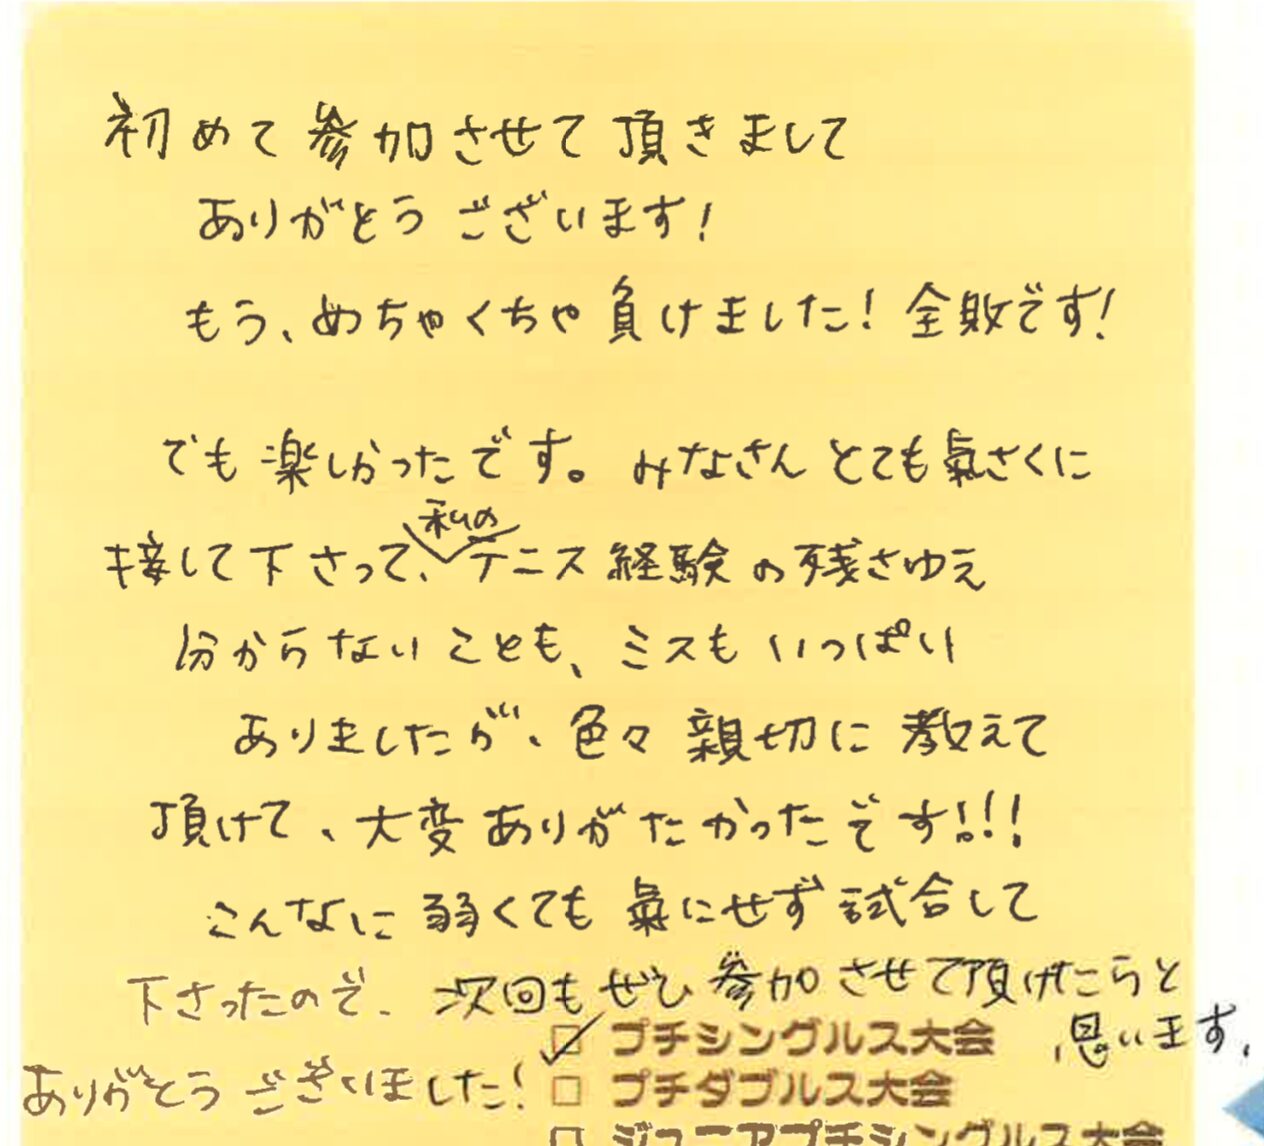 初めて参加させて頂きまして
ありがとうございます!
もう、めちゃくちゃ負けました!全敗です!
でも楽しかったです。みなさんとても氣さくに
接して下さって、私のテニス経験の残さゆえ
分からないことも、ミスもいっぱい
ありましたが、色々親切に教えて
頂けて、大変ありがたかったです!!!
こんなに弱くても氣にせず試合して
下さったので、次回もぜひ参加させて頂けたらと
思います。
ありがとうございました!
☑ プチシングルス大会
□ プチダブルス大会
□ ジュニアプチシングルス大会